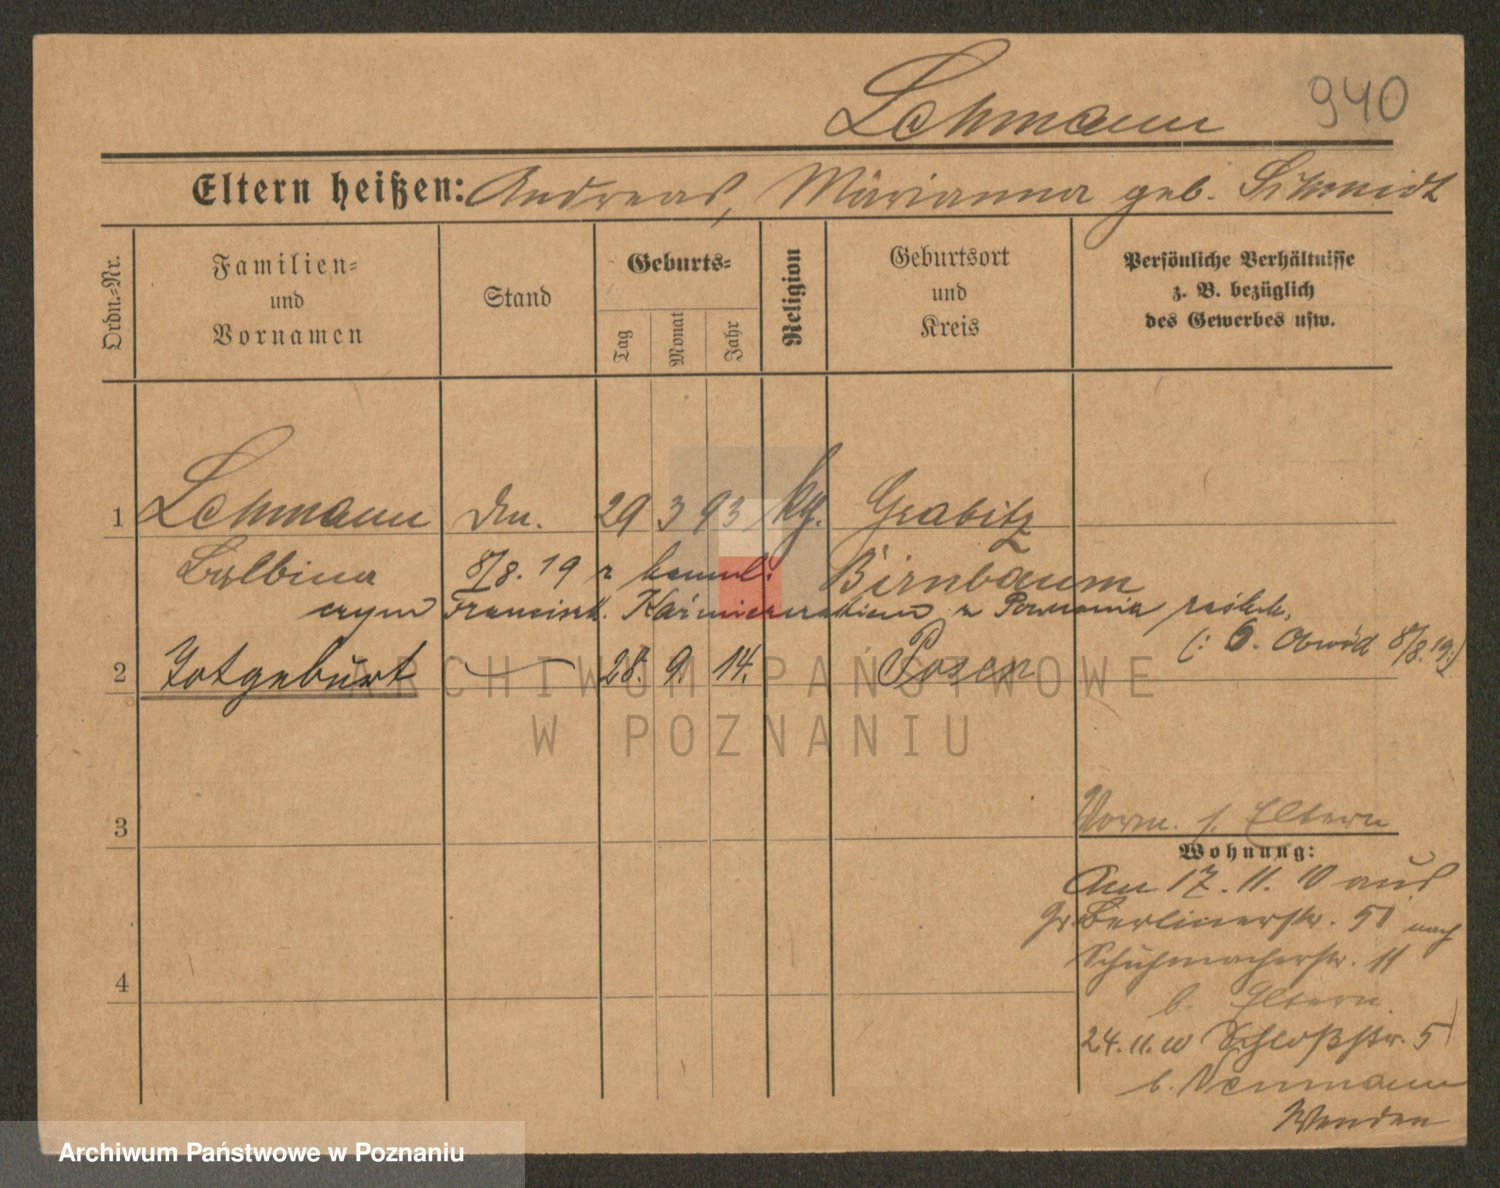 940
Lehmann
Eltern heißen: Andreas, Marianna geb. Schmidt
Ordn.=Nr.
Familien= und Vornamen
Stand
Geburts=
Tag
Monat
Jahr
Religion
Geburtsort und Kreis
Persönliche Verhältnisse z. B. bezüglich des Gewerbes usw.
1 Lehmann 29 3 93 Grabitz
Balbina 8/8. 19 Birnbaum
Francisz. Kaźmierczakiem z Poznania
(: 6. Obwód 8/8.19:)
2 Totgeburt 28. 9. 14. Posen
3
Vorm. s. Eltern
Wohnung:
Am 17. 11. 10 aus
Gr Berlinerstr. 51 nach
Schuhmacherstr. 11
4
b. Eltern
24.11.10 Schloßstr. 5
b. Neumann
Wenden
ARCHIWUM PAŃSTWOWE
W POZNANIU
Archiwum Państwowe w Poznaniu